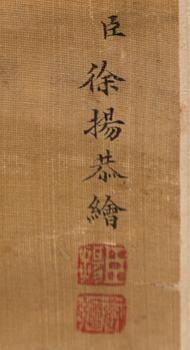 臣徐揚恭繪